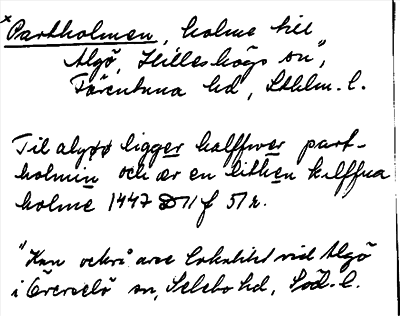 x Partholmen, holme till
Algö, Hilleshögs sn",
Färentuna hd, Sthlm. l.
Til algøø ligger halffwer part-
holmin och ær en lithen kalffua
holme 1447 D 11 f 51 r.
"Kan också avse lokalitet vid Algö
i Överselö sn, Selebo hd, Söd. l.